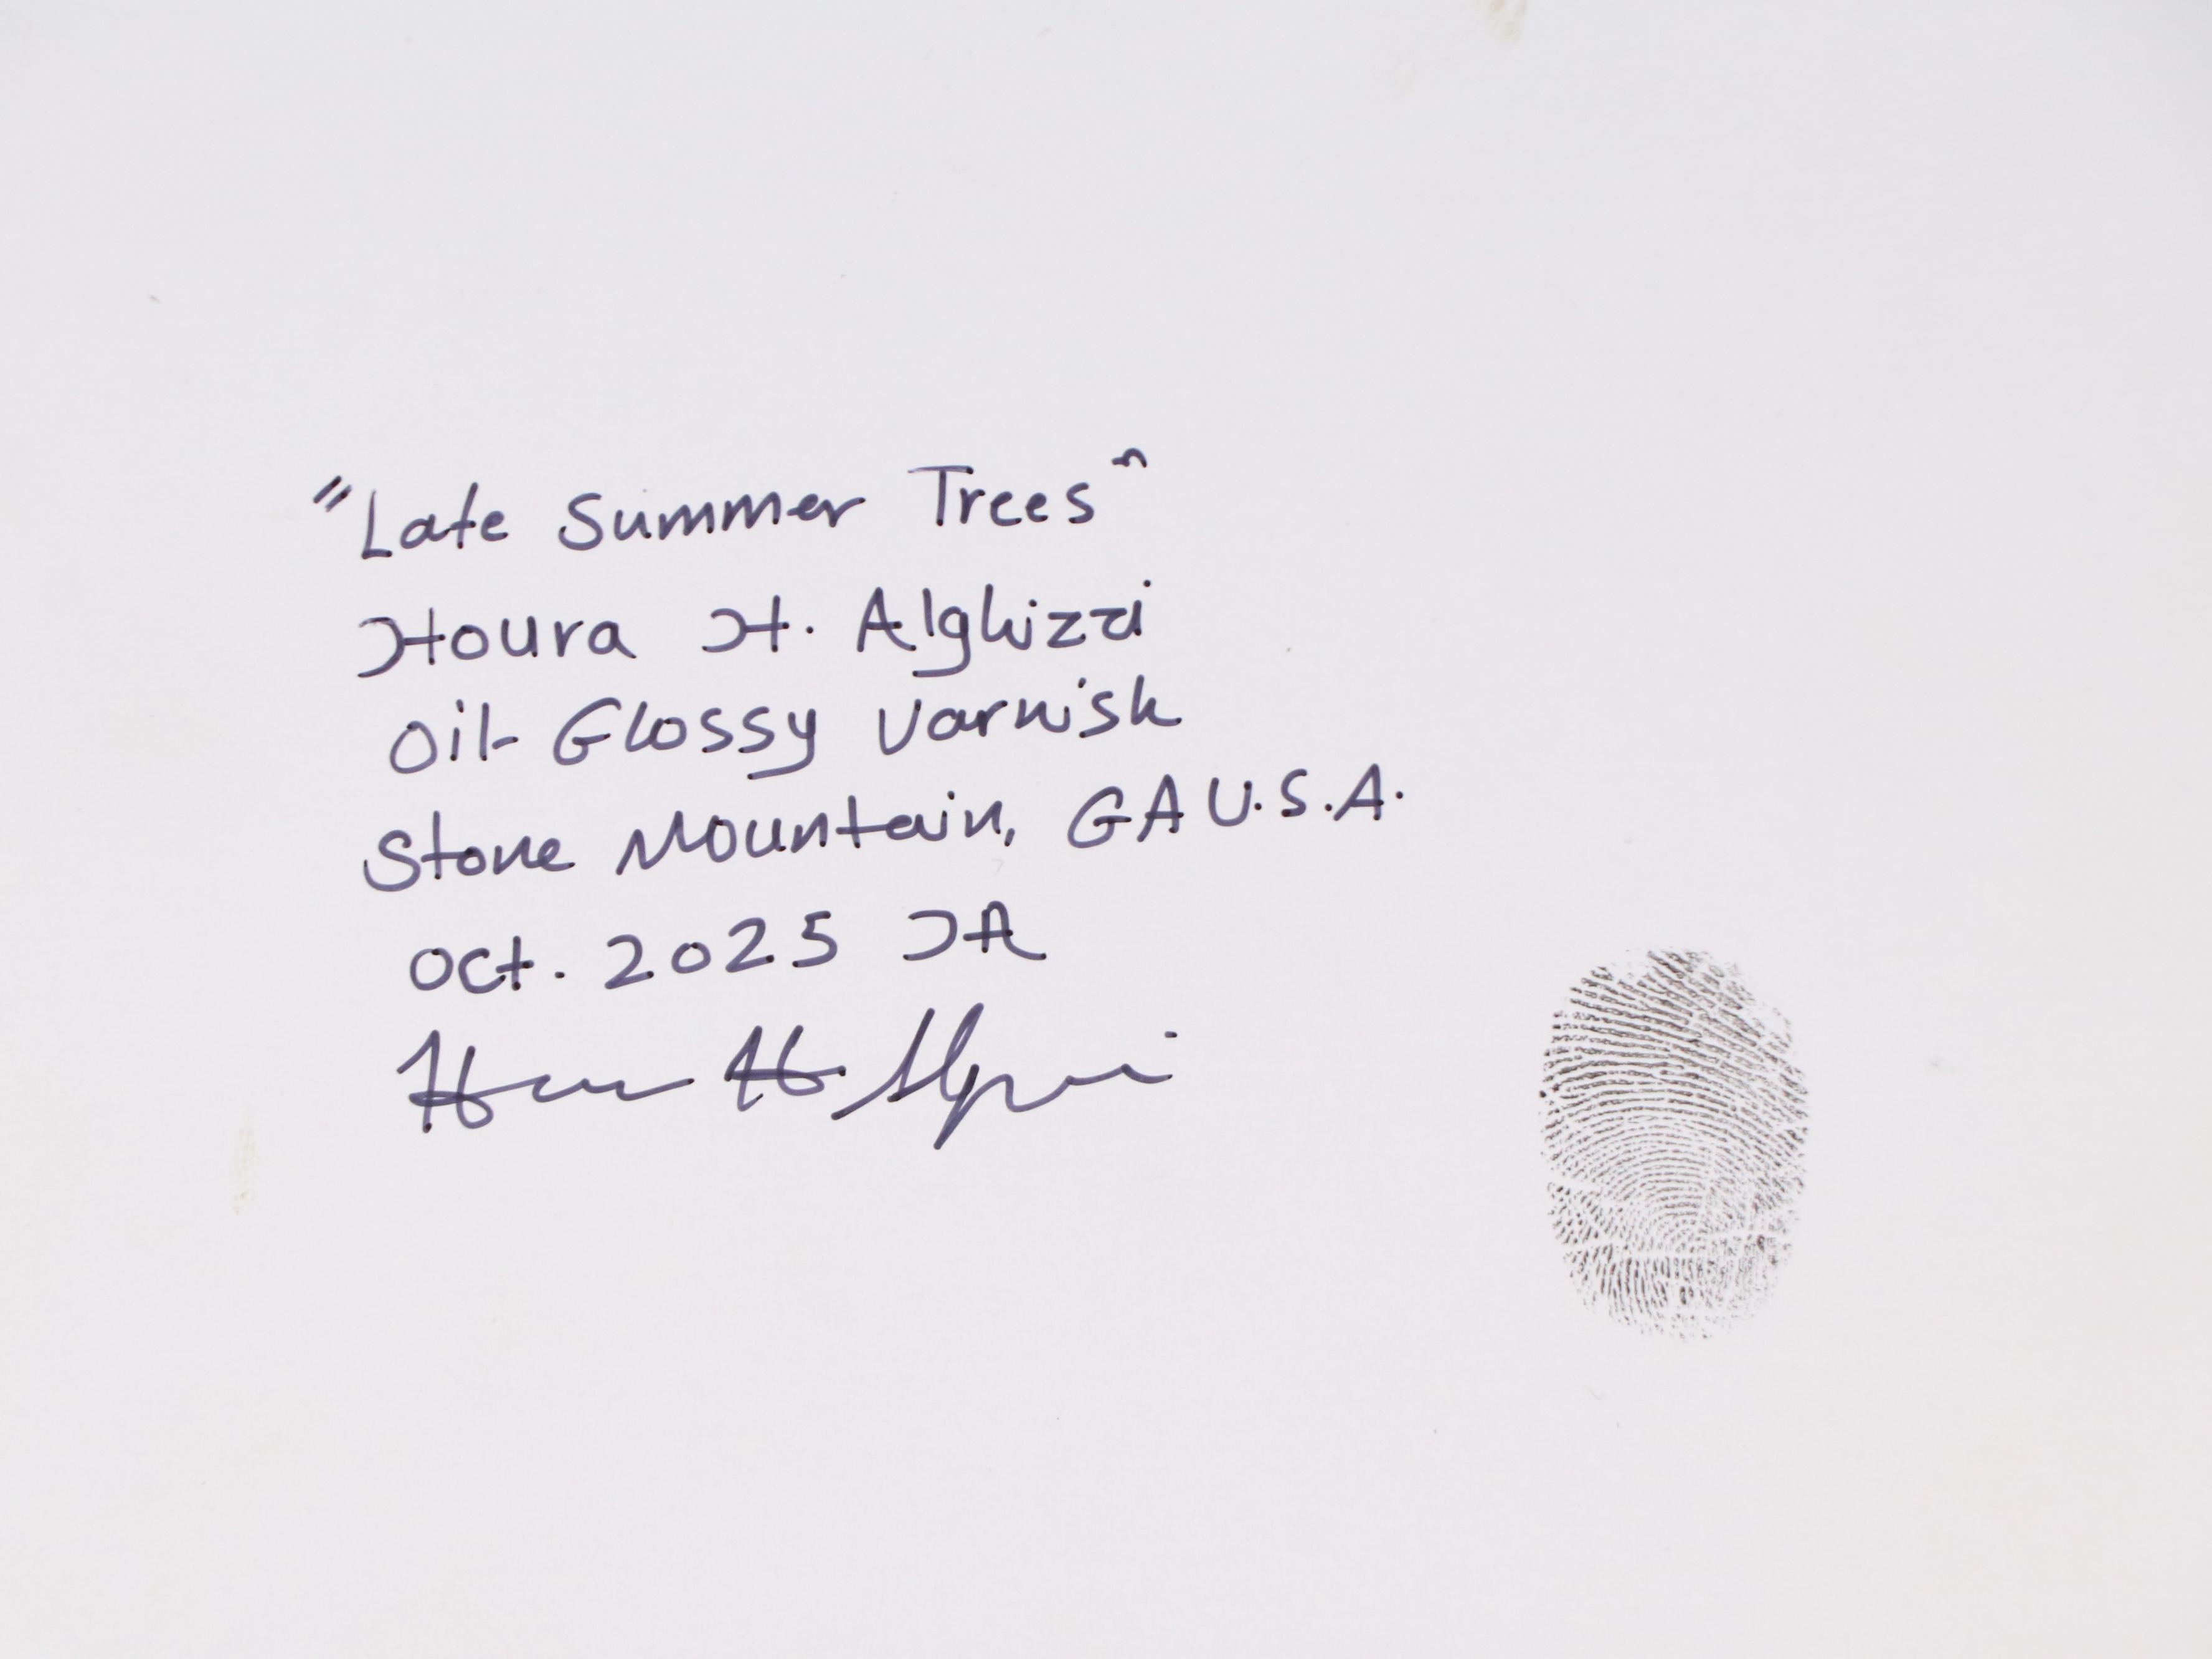 "Late Summer Trees"
Houra H. Alghizzi
Oil - Glossy Varnish
Stone Mountain, GA U.S.A.
Oct. 2025 HA